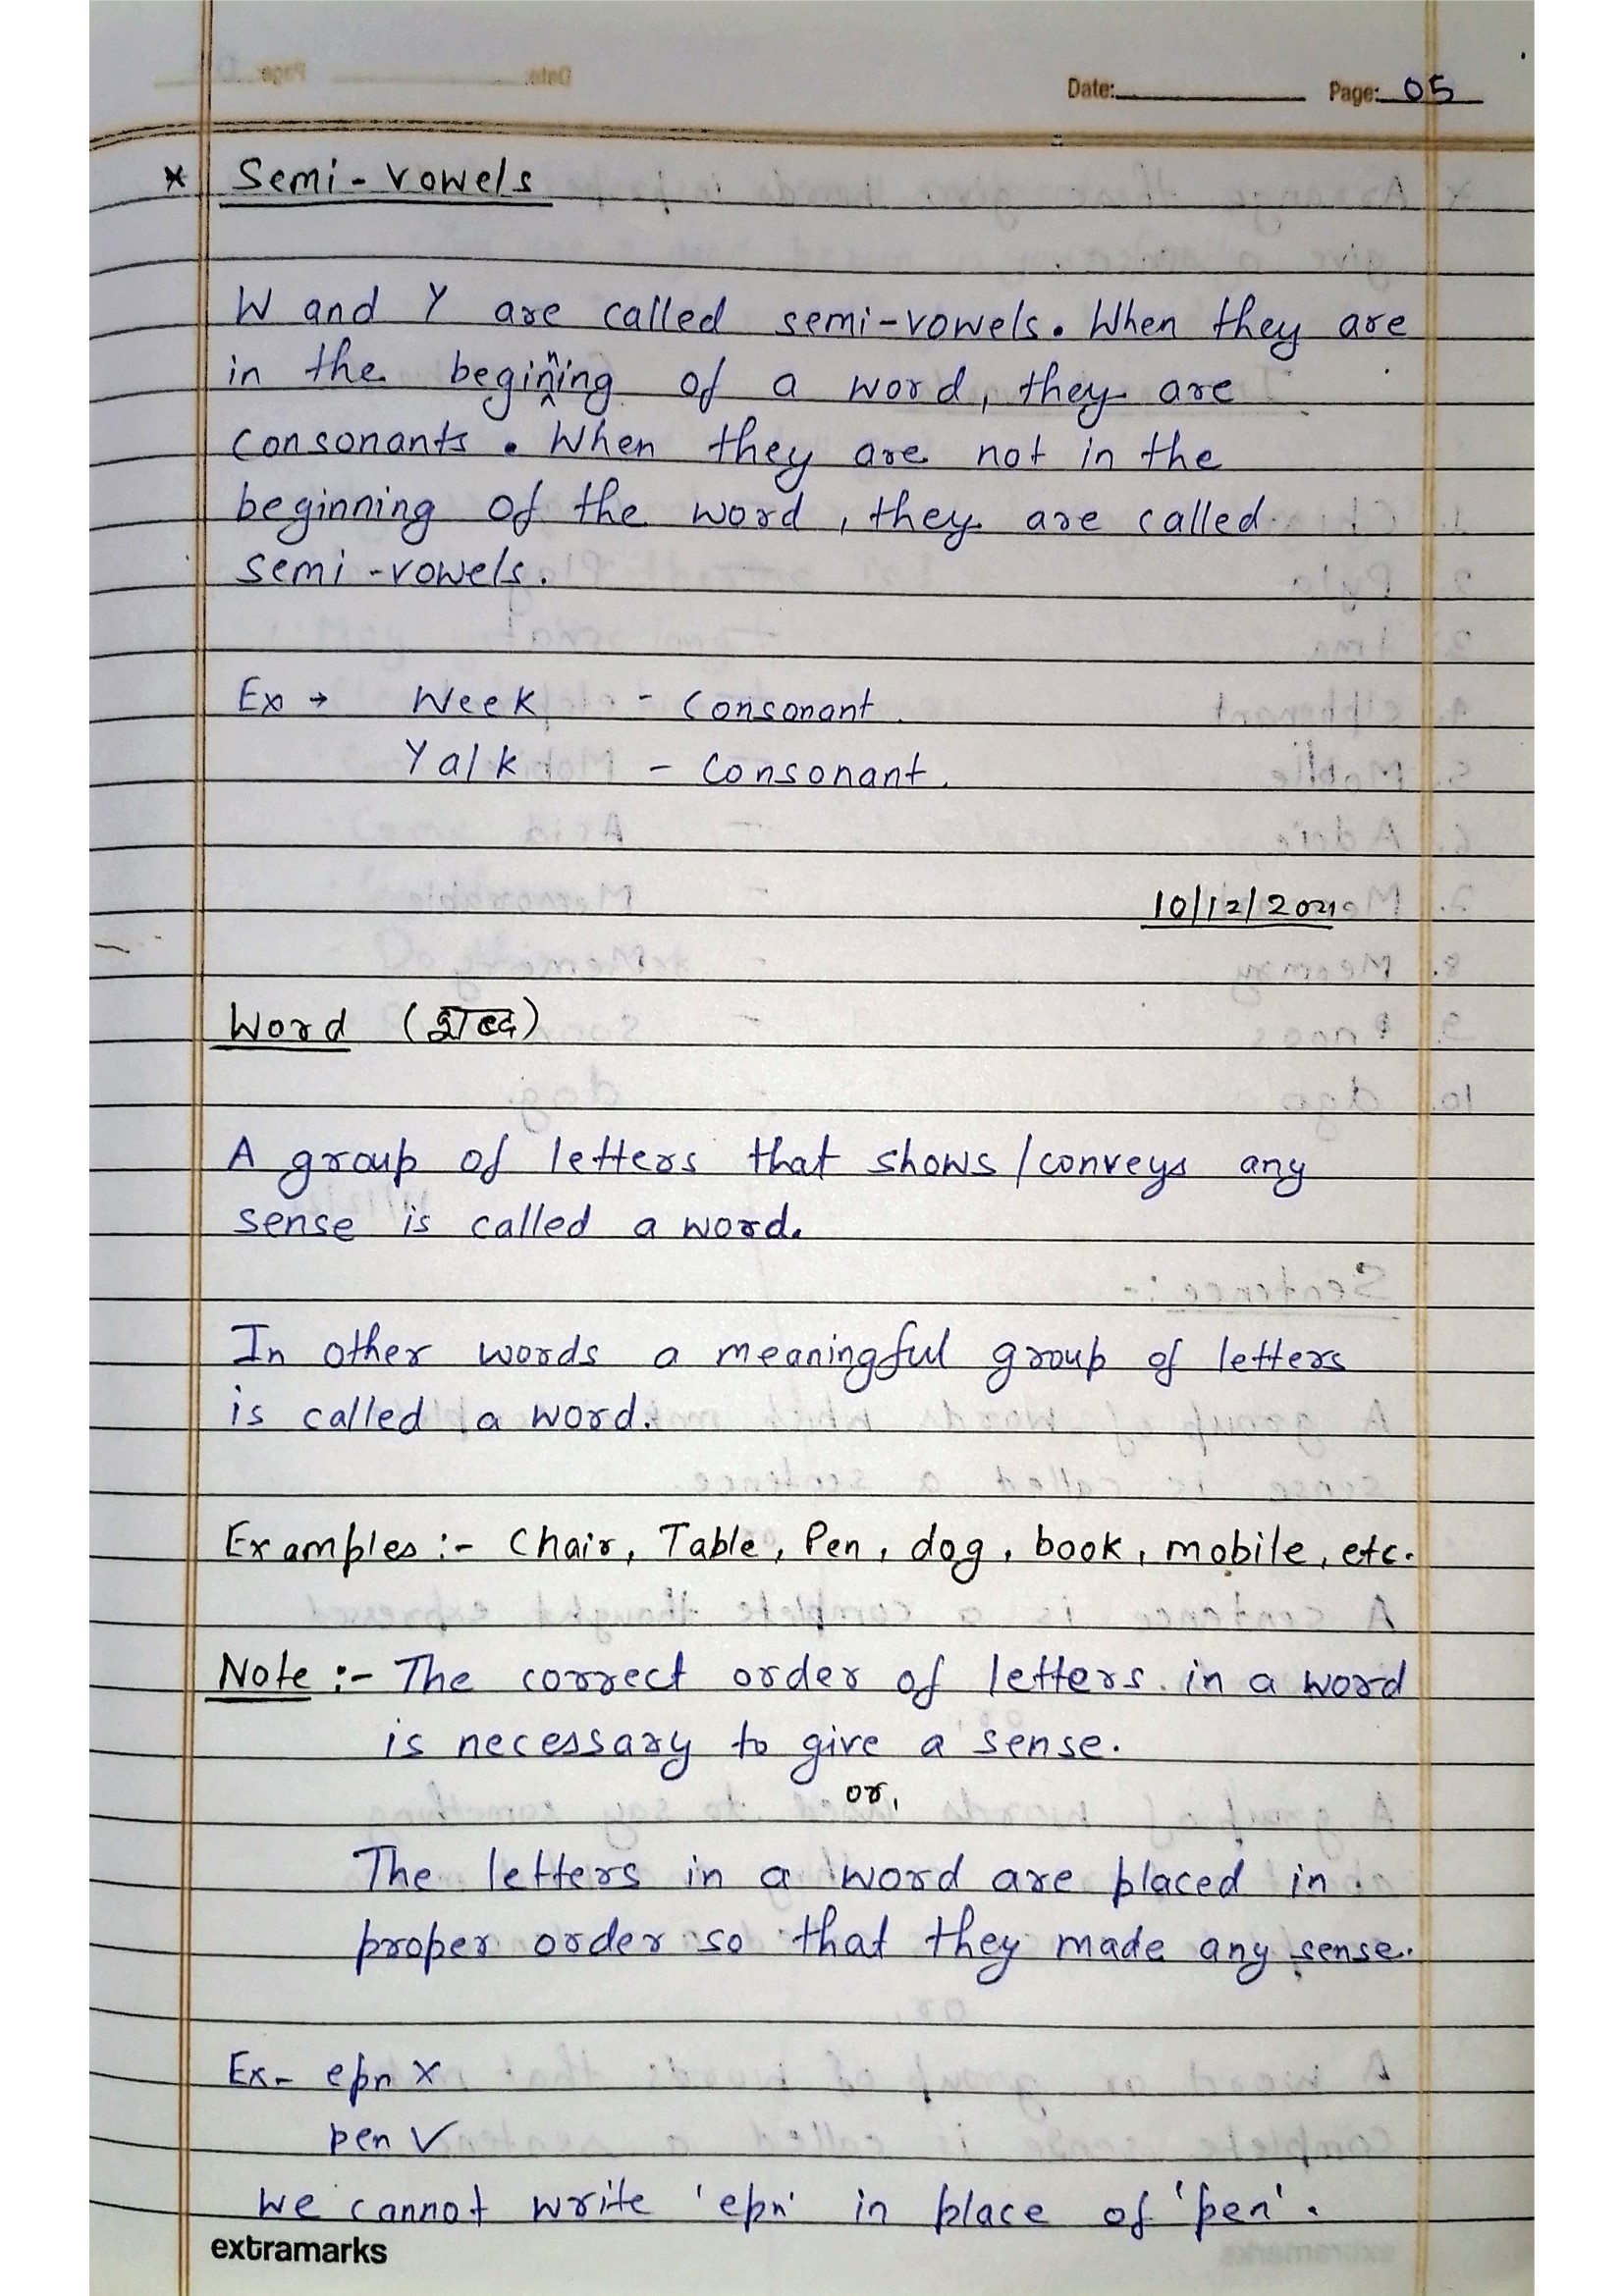 Date: Page: 05
* Semi-vowels
W and Y are called semi-vowels. When they are
in the beginning of a word, they are
consonants. When they are not in the
beginning of the word, they are called
semi-vowels.
Ex → Week - Consonant
Yalk - Consonant.
10/12/2021
Word (शब्द)
A group of letters that shows/conveys any
sense is called a word.
In other words a meaningful group of letters
is called a word.
Examples :- Chair, Table, Pen, dog, book, mobile, etc.
Note :- The correct order of letters in a word
is necessary to give a sense.
or,
The letters in a word are placed in
proper order so that they made any sense.
Ex- epn x
pen ✓
We cannot write 'epn' in place of 'pen'.
extramarks